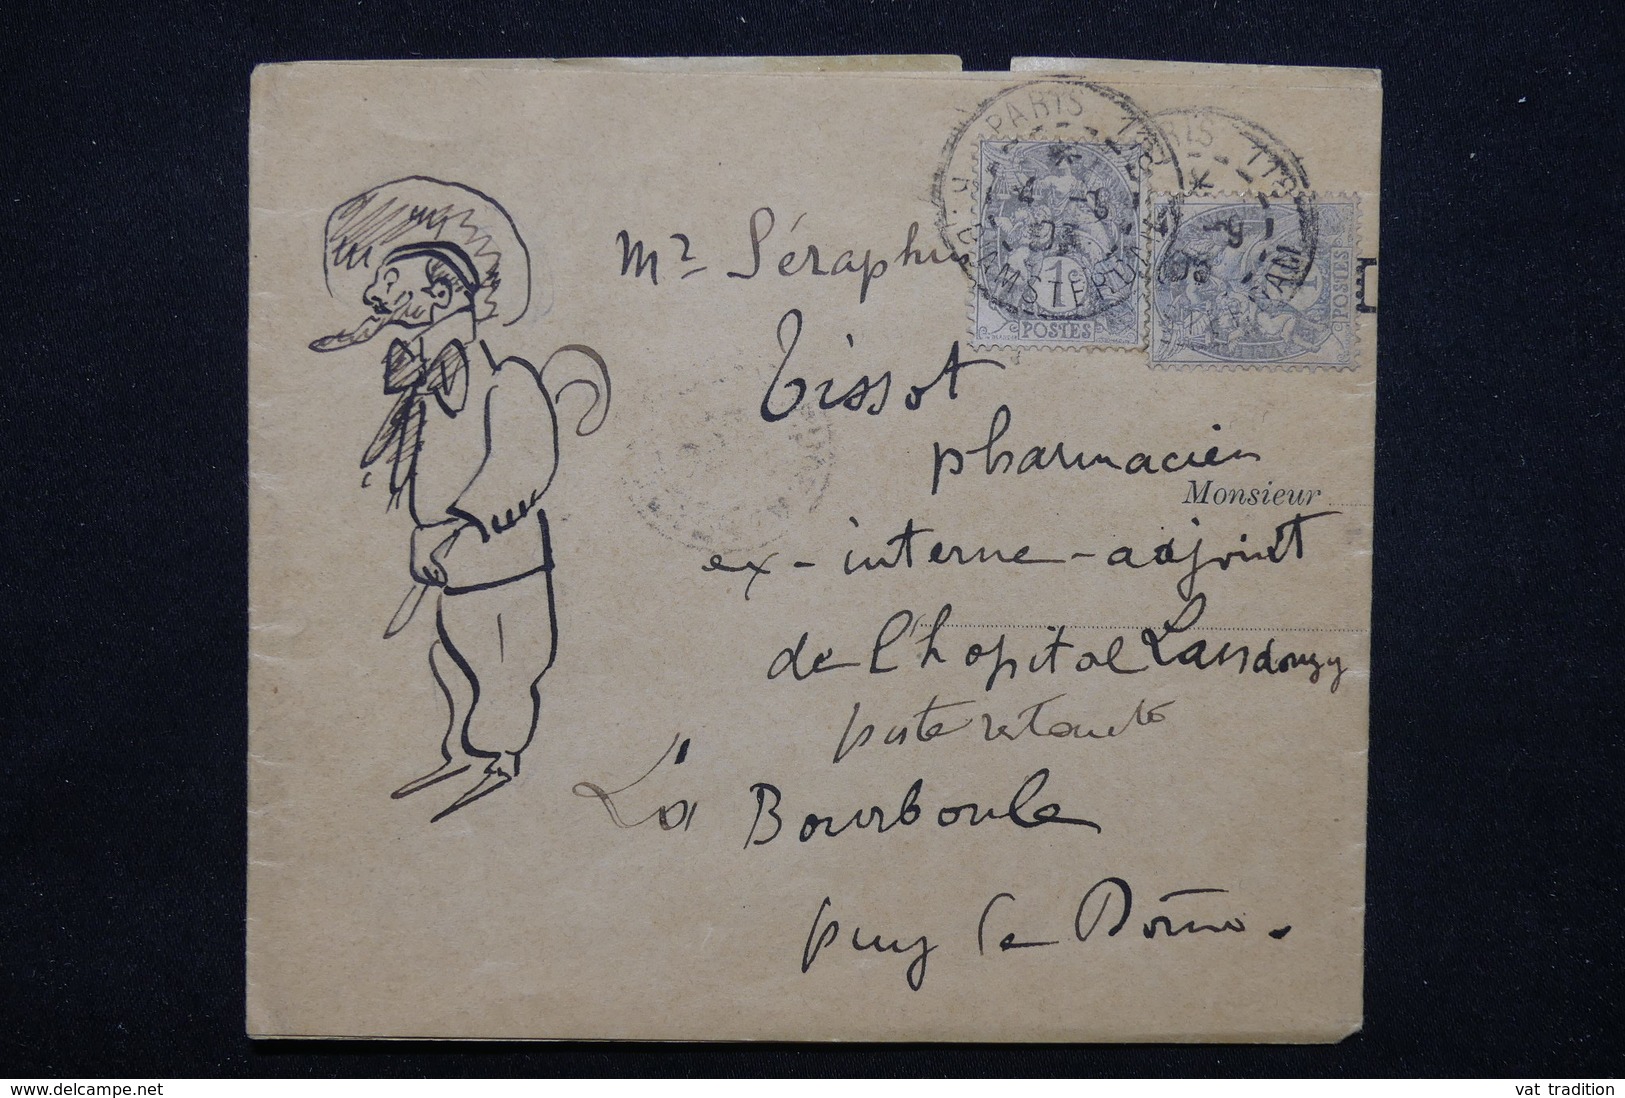 Mr Séraphin
Tissot
pharmacien
Monsieur
ex-interne-adjoint
de l'hopital Landouzy
poste restante
La Bourboule
puy de Dôme.
PARIS 118
AMSTERDAM
PARIS 118
1c
POSTES
POSTES
www.delcampe.net
vat tradition